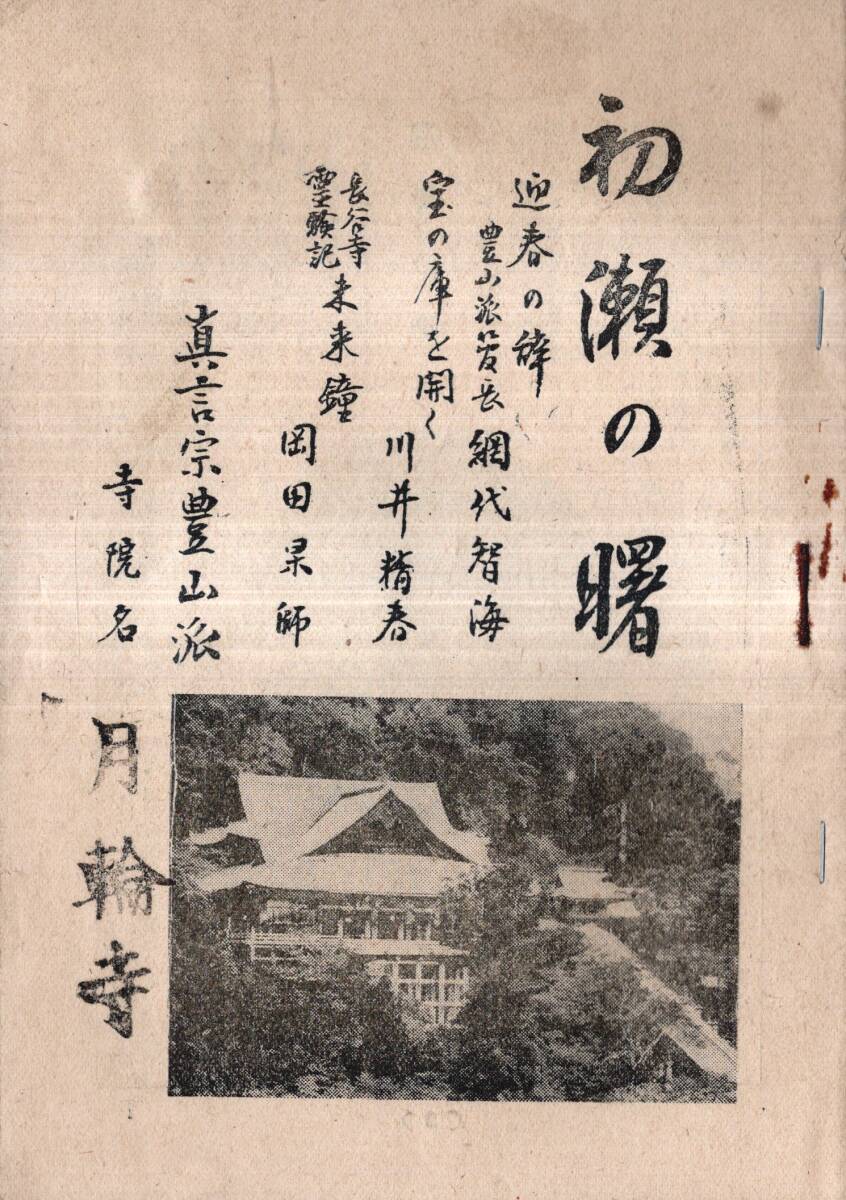 初瀬の曙
迎春の辞
豊山派管長 網代智海
宝の庫を開く
川井精春
長谷寺
霊験記
未来鐘
岡田杲師
真言宗豊山派
寺院名
月輪寺